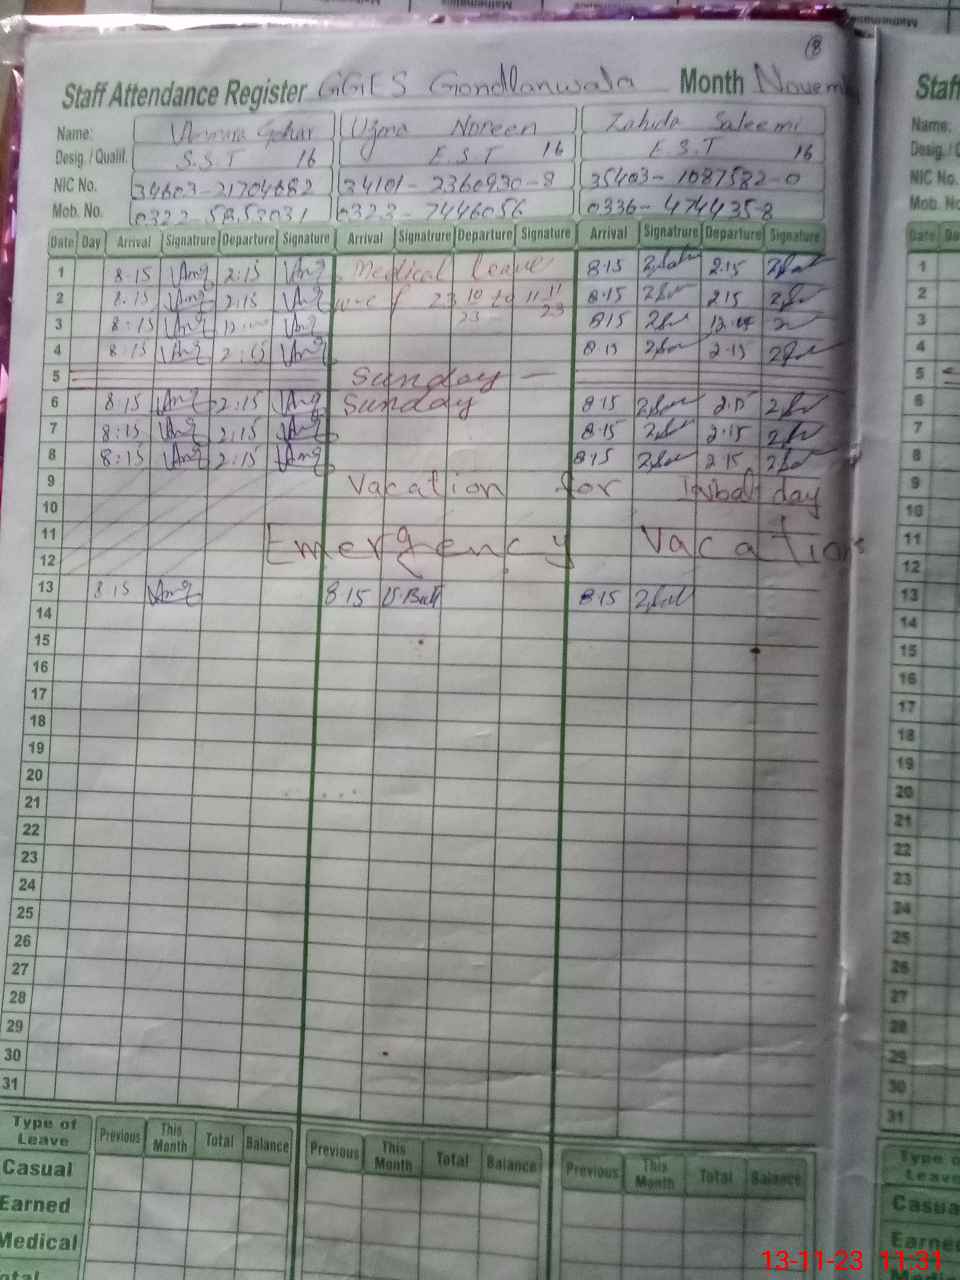 Mathematics
18
Staff Attendance Register GGES Gondlanwala Month Novem
Name: Uzma Noreen Zahida Saleemi
Desig. / Qualif. S.S.T 16 E.S.T 16 E.S.T 16
NIC No. 34603-21704682 34101-2360930-8 35403-1087582-0
Mob. No. 0323-7446056 0336-4744358
Date Day Arrival Signatrure Departure Signature Arrival Signatrure Departure Signature Arrival Signatrure Departure Signature
1 8:15 2:15 Medical leave 8:15 2:15
2 8:15 2:15 w.e.f 23 10 23 to 11 11 23 8:15 2:15
3 8:15 12 815 12
4 8:15 2:15 8:15 2:15
5 Sunday
6 8:15 2:15 Sunday 8:15 2:15
7 8:15 2:15 8:15 2:15
8 8:15 2:15 8:15 2:15
9 Vacation for day
10
11 Emergency Vacation
12
13 8:15 8:15 8:15
14
15
16
17
18
19
20
21
22
23
24
25
26
27
28
29
30
31
Type of Leave Previous This Month Total Balance Previous This Month Total Balance Previous This Month Total Balance
Casual
Earned
Medical
otal
Staff
Name:
Desig. /
NIC No
Mob. No
Date Da
1
2
3
4
5
6
7
8
9
10
11
12
13
14
15
16
17
18
19
20
21
22
23
24
25
26
27
28
29
30
31
Type o
Leave
Casua
Earne
13-11-23 11:31